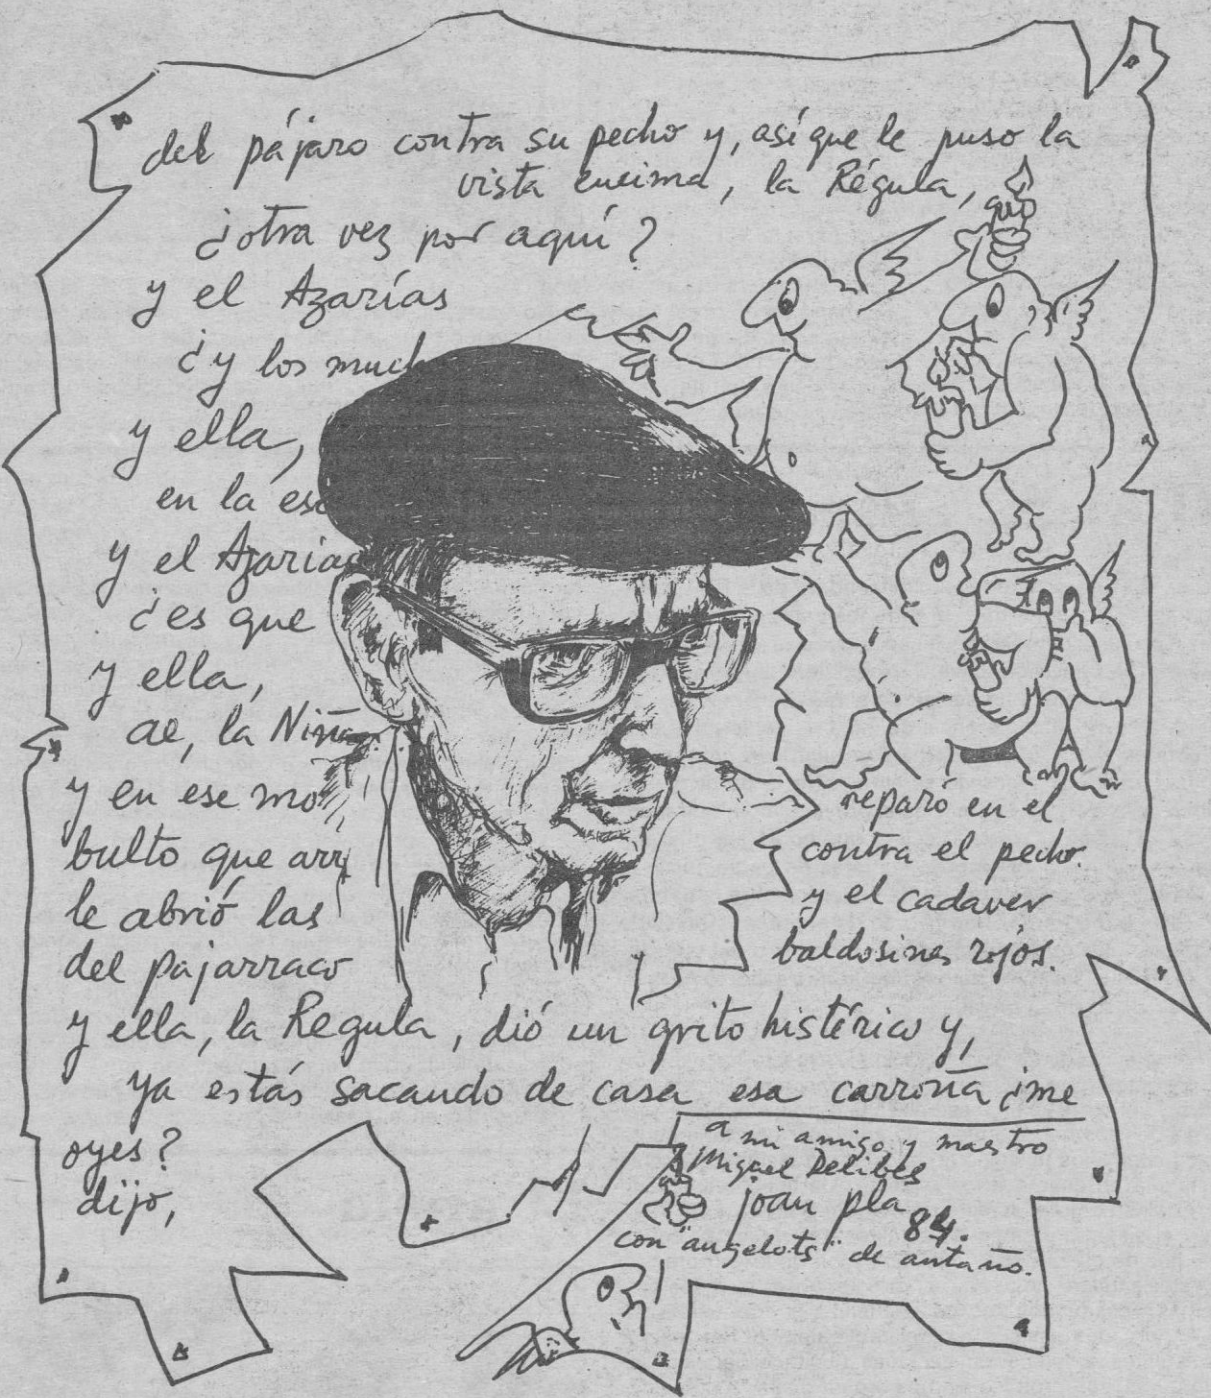 del pájaro contra su pecho y, así que le puso la
vista encima, la Régula,
¿otra vez por aquí?
y el Azarías
¿y los much
y ella,
en la esc
y el Azarías
¿es que
y ella,
ae, la Niña
y en ese mo reparó en el
bulto que arr contra el pecho.
le abrió las y el cadaver
del pajarraco baldosines rojos.
y ella, la Regula, dió un grito histérico y,
ya estás sacando de casa esa carroña ¿me
oyes?
dijo,
a mi amigo y maestro
Miguel Delibes
joan pla 84.
con "angelots" de antaño.